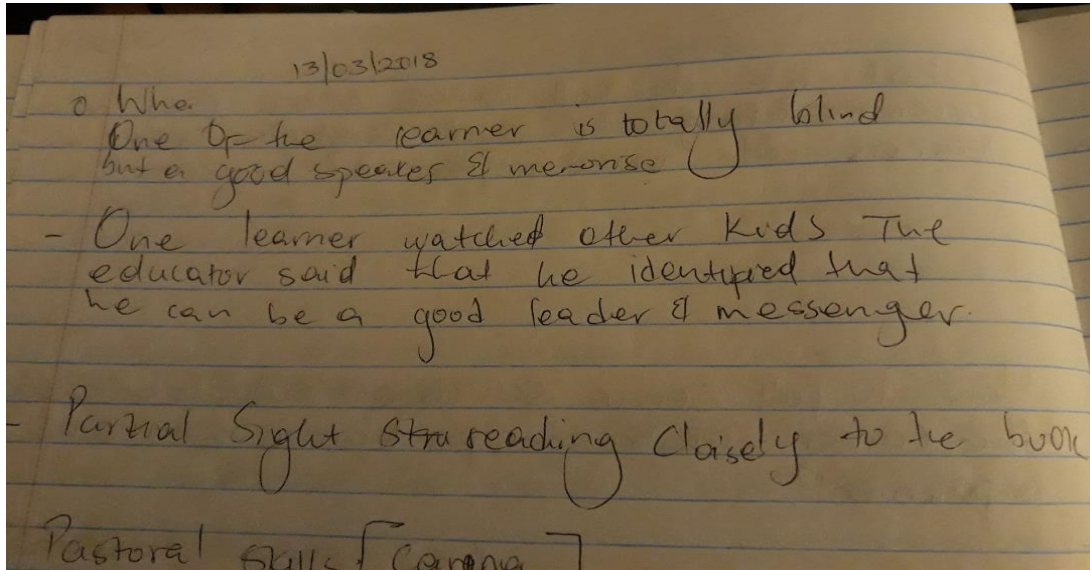 13/03/2018
o Whe.
One Of the learner is totally blind
but a good speaker & memorise
- One learner watched other Kids The
educator said that he identified that
he can be a good leader & messenger.
- Partial Sight reading Cloisely to the book
Pastoral skills [Caring]